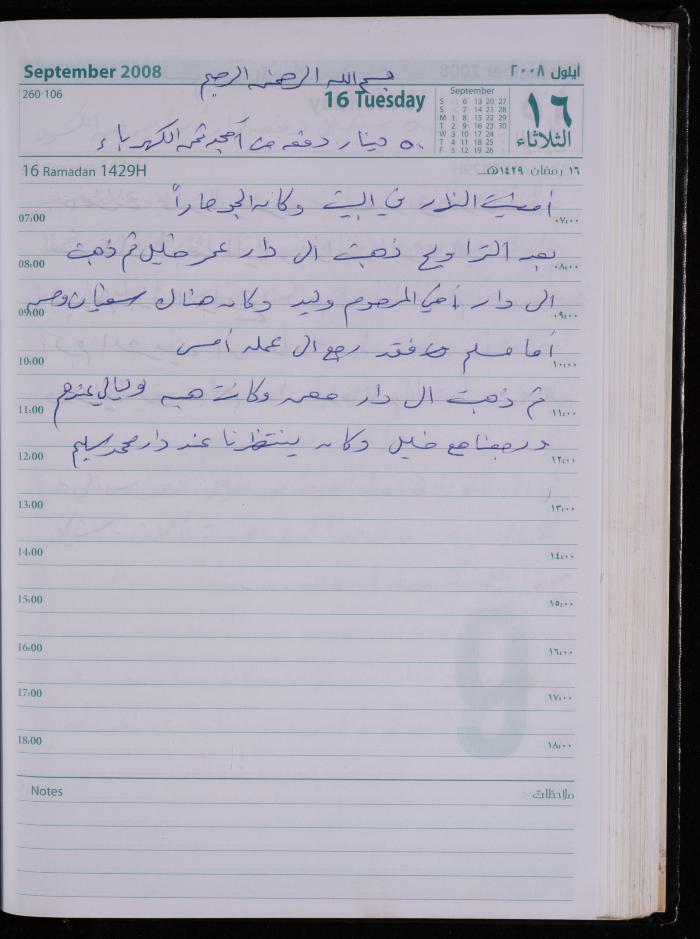 September 2008
بسم الله الرحمن الرحيم
أيلول ٢٠٠٨
260-106
16 Tuesday
September
S 6 13 20 27
S 7 14 21 28
M 1 8 15 22 29
T 2 9 16 23 30
W 3 10 17 24
T 4 11 18 25
F 5 12 19 26
١٦
الثلاثاء
٥٠ دينار دفعه من أمجد ثمن الكهرباء
16 Ramadan 1429H
١٦ رمضان ١٤٢٩هـ
أمضيت النهار في البيت وكان الجو حاراً
07:00 ٠٧:٠٠
بعد التراويح ذهبت الى دار عمر خليل ثم ذهبت
08:00 ٠٨:٠٠
الى دار أخي المرحوم وليد وكان هناك سفيان
09:00 ٠٩:٠٠
أما مسلم فقد رجع الى عمله أمس
10:00 ١٠:٠٠
ثم ذهبت الى دار وكانت هبه وليالي عندهم
11:00 ١١:٠٠
ورجعنا مع خليل وكان ينتظرنا عند دار محمد سليم
12:00 ١٢:٠٠
13:00 ١٣:٠٠
14:00 ١٤:٠٠
15:00 ١٥:٠٠
16:00 ١٦:٠٠
17:00 ١٧:٠٠
18:00 ١٨:٠٠
9
Notes ملاحظات